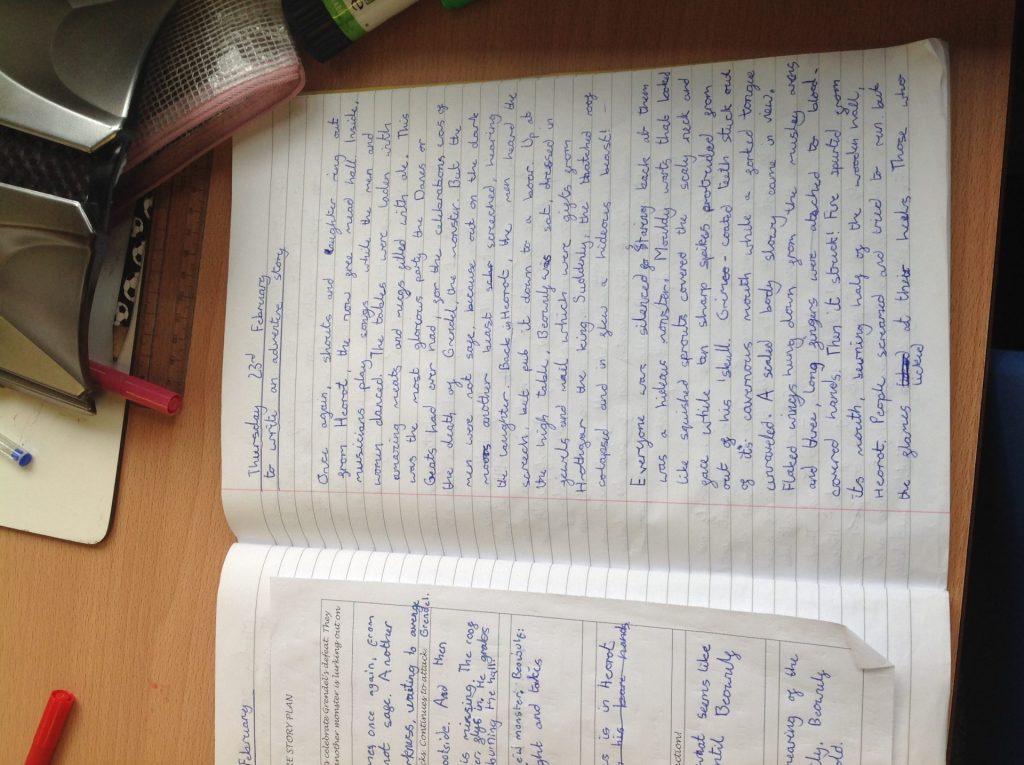 Thursday 23rd February
to write an adventure story
Once again, shouts and laughter ring out
from Heorot, the now free mead hall. Inside,
musicians play songs while the men and
women danced. The tables were laden with
amazing meats and mugs filled with ale. This
was the most glorious party the Danes or
Geats had ever had for the celebrations was of
the death of Grendel, the monster. But the
men were not safe, because out on the dark
moors another beast screeched, hearing
the laughter. Back in Heorot, the men heard the
screech, but put it down to a boar. Up at
the high table, Beowulf was sat, dressed in
jewels and mail which were gifts from
Hrothgar the king. Suddenly, the thatched roof
colapsed and in flew a hideous beast!
Everyone was silenced for staring back at them
was a hideous monster. Mouldy warts that looked
like squished sprouts covered the scaly neck and
face while ten sharp spikes protruded from
out of his skull. Grime-coated teeth stuck out
of it's cavernous mouth while a forked tongue
unravelled. A scaled body slowly came in view.
Flaked wings hung down from the mushey arms
and three, long fingers were atached to blood-
covered hands. Then it struck! Fire spurted from
its mouth, burning half of the wooden hall,
Heorot. People screamed and tried to run but
the flames licked at their heels. Those who
February
RE STORY PLAN
o celebrate Grendel's defeat. They
another monster is lurking out on
mes once again, from
not safe. Another
rkness, waiting to avenge
cks. Continues to attack. Grendel.
outside. And then
is missing. The roof
er flys in. He grabs
burning the hall!
ew monster. Beowulf:
ght and takes
s is in Heorot
, his bare hands
ction!
what seems like
until Beowulf
hearing of the
ly. Beowulf
old.